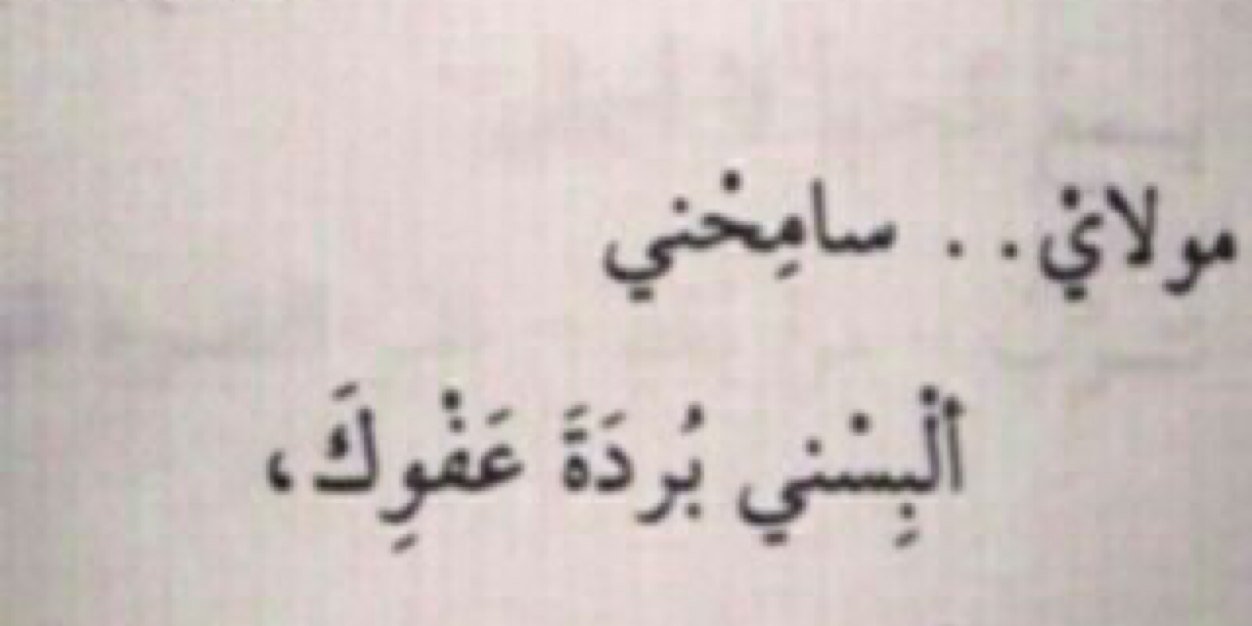 مولايْ . . سامِحْني
ألْبِسْني بُردَةَ عَفْوِكَ،